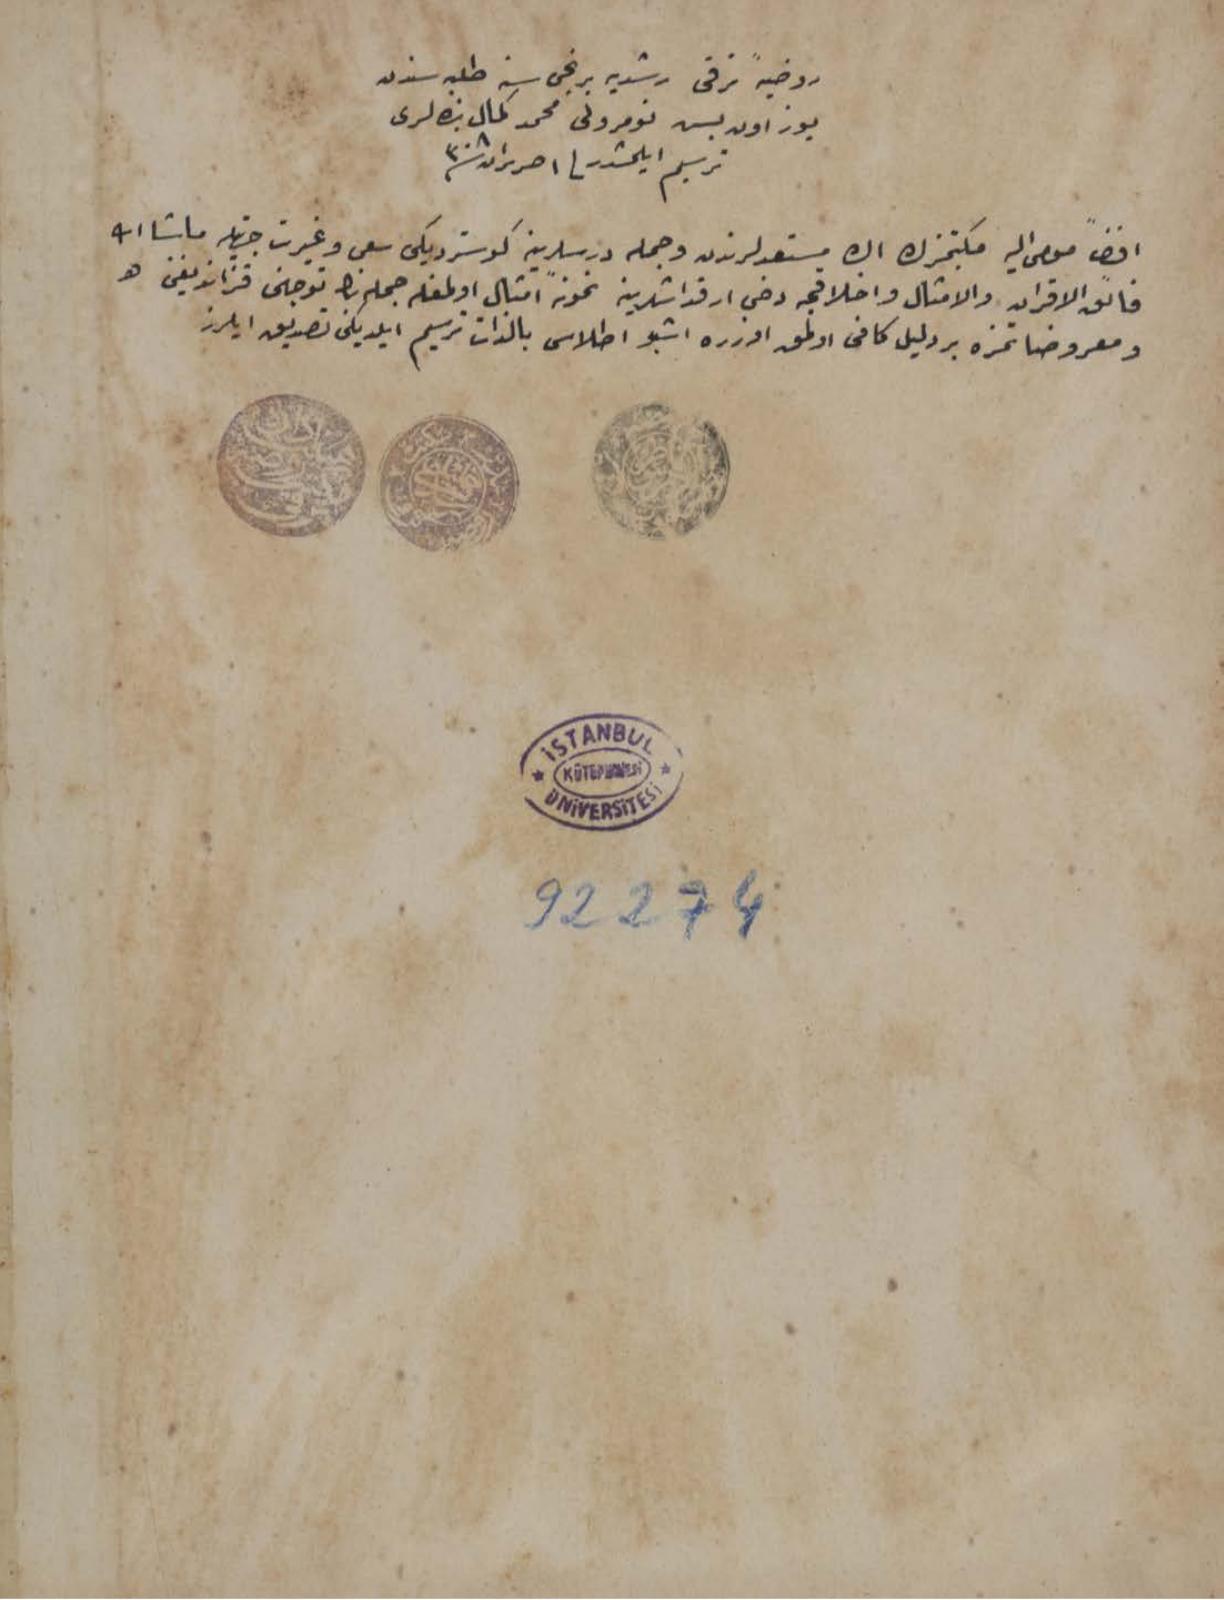 روضهٔ ترقی رشدیه برنجی سنه طلبه سندن
یوز اون بش نومرولی محمد کمال بنده لری
ترسیم ایلمشدر ١ حزیران ٣٠٨
مومی الیه مکتبمزك اڭ مستعدلرندن وجمله درسلرینه کوستردیکی سعی وغیرت جهتیله ماشاالله
فائق الاقران والامثال واخلاقجه دخی ارقداشلرینه نمونهٔ امتثال اولمغله جمله نڭ توجهنی قزاندیغنی
ومعروضاتمزه بر دلیل کافی اولمق اوزره اشبو اطلاسی بالذات ترسیم ایلدیکنی تصدیق ایلرز
İSTANBUL
KÜTÜPHANESİ
ÜNİVERSİTESİ
92274